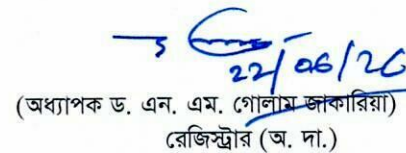 22/06/26
(অধ্যাপক ড. এন. এম. গোলাম জাকারিয়া)
রেজিস্ট্রার (অ. দা.)